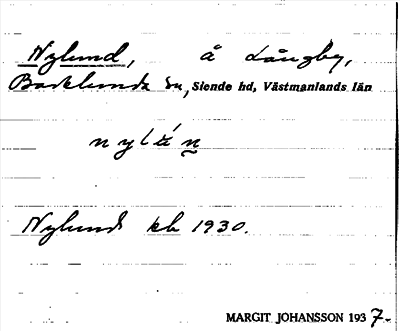 Nylund, å Långby,
Björklunda sn, Siende hd, Västmanlands län
nylán
Nylund kb 1930.
MARGIT JOHANSSON 1937-